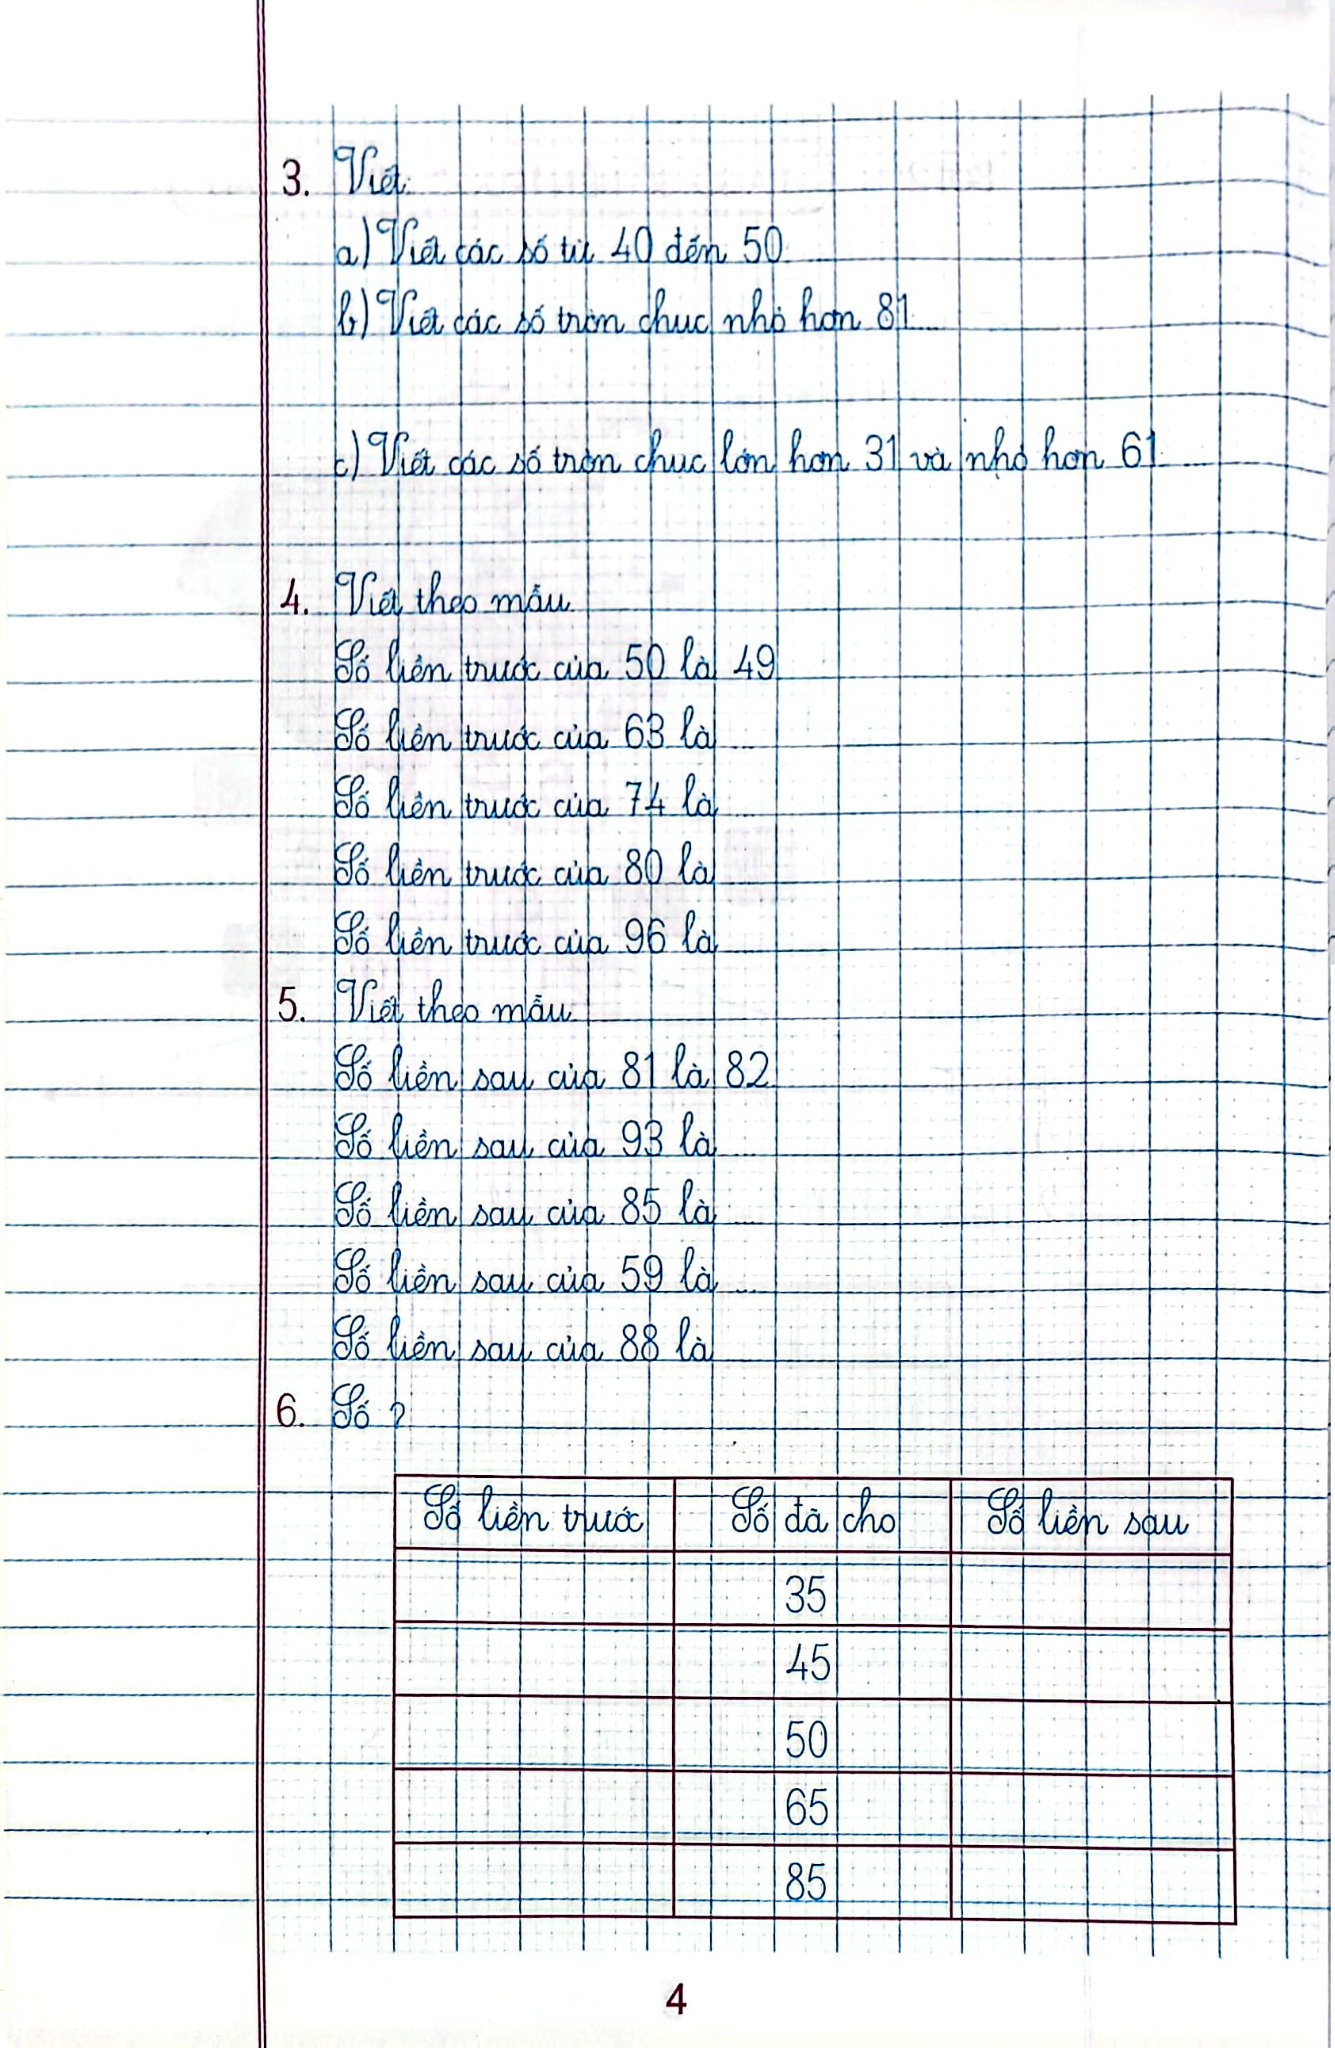 3. Viết:
a) Viết các số từ 40 đến 50:.........
b) Viết các số tròn chục nhỏ hơn 81:....
c) Viết các số tròn chục lớn hơn 31 và nhỏ hơn 61:....
4. Viết theo mẫu:
Số liền trước của 50 là 49
Số liền trước của 63 là ....
Số liền trước của 74 là ....
Số liền trước của 80 là ....
Số liền trước của 96 là ....
5. Viết theo mẫu:
Số liền sau của 81 là 82
Số liền sau của 93 là ....
Số liền sau của 85 là ....
Số liền sau của 59 là ....
Số liền sau của 88 là ....
6. Số ?
Số liền trước Số đã cho Số liền sau
35
45
50
65
85
4